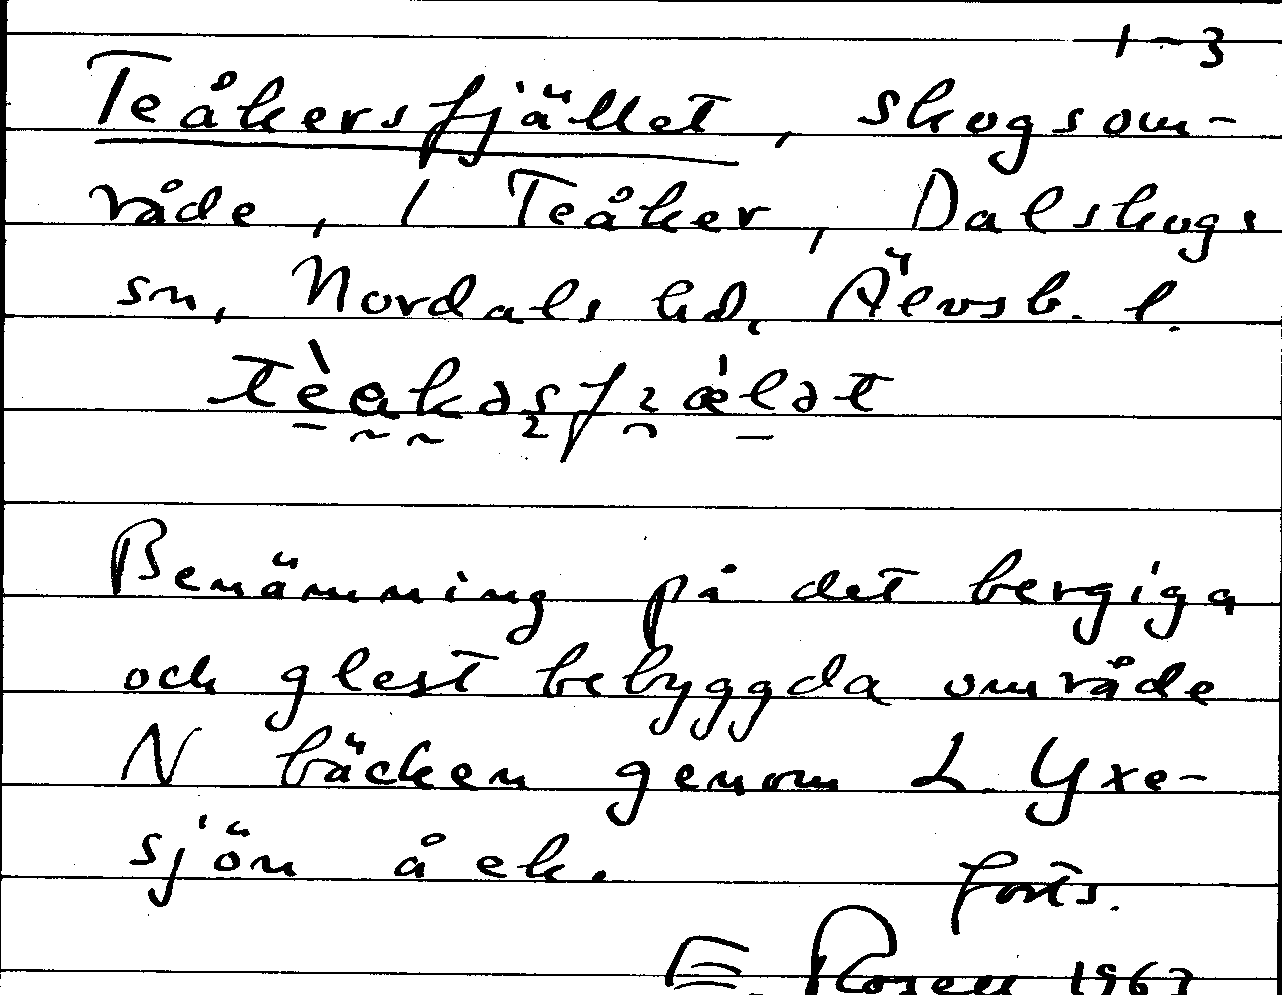 1-3
Teåkersfjället, skogsom-
råde, i Teåker, Dalskogs
sn, Nordals hd, Älvsb. l.
Benämning på det bergiga
och glest bebyggda område
N bäcken genom L. Yxe-
sjön å ek.
forts.
E. Rosell 1963